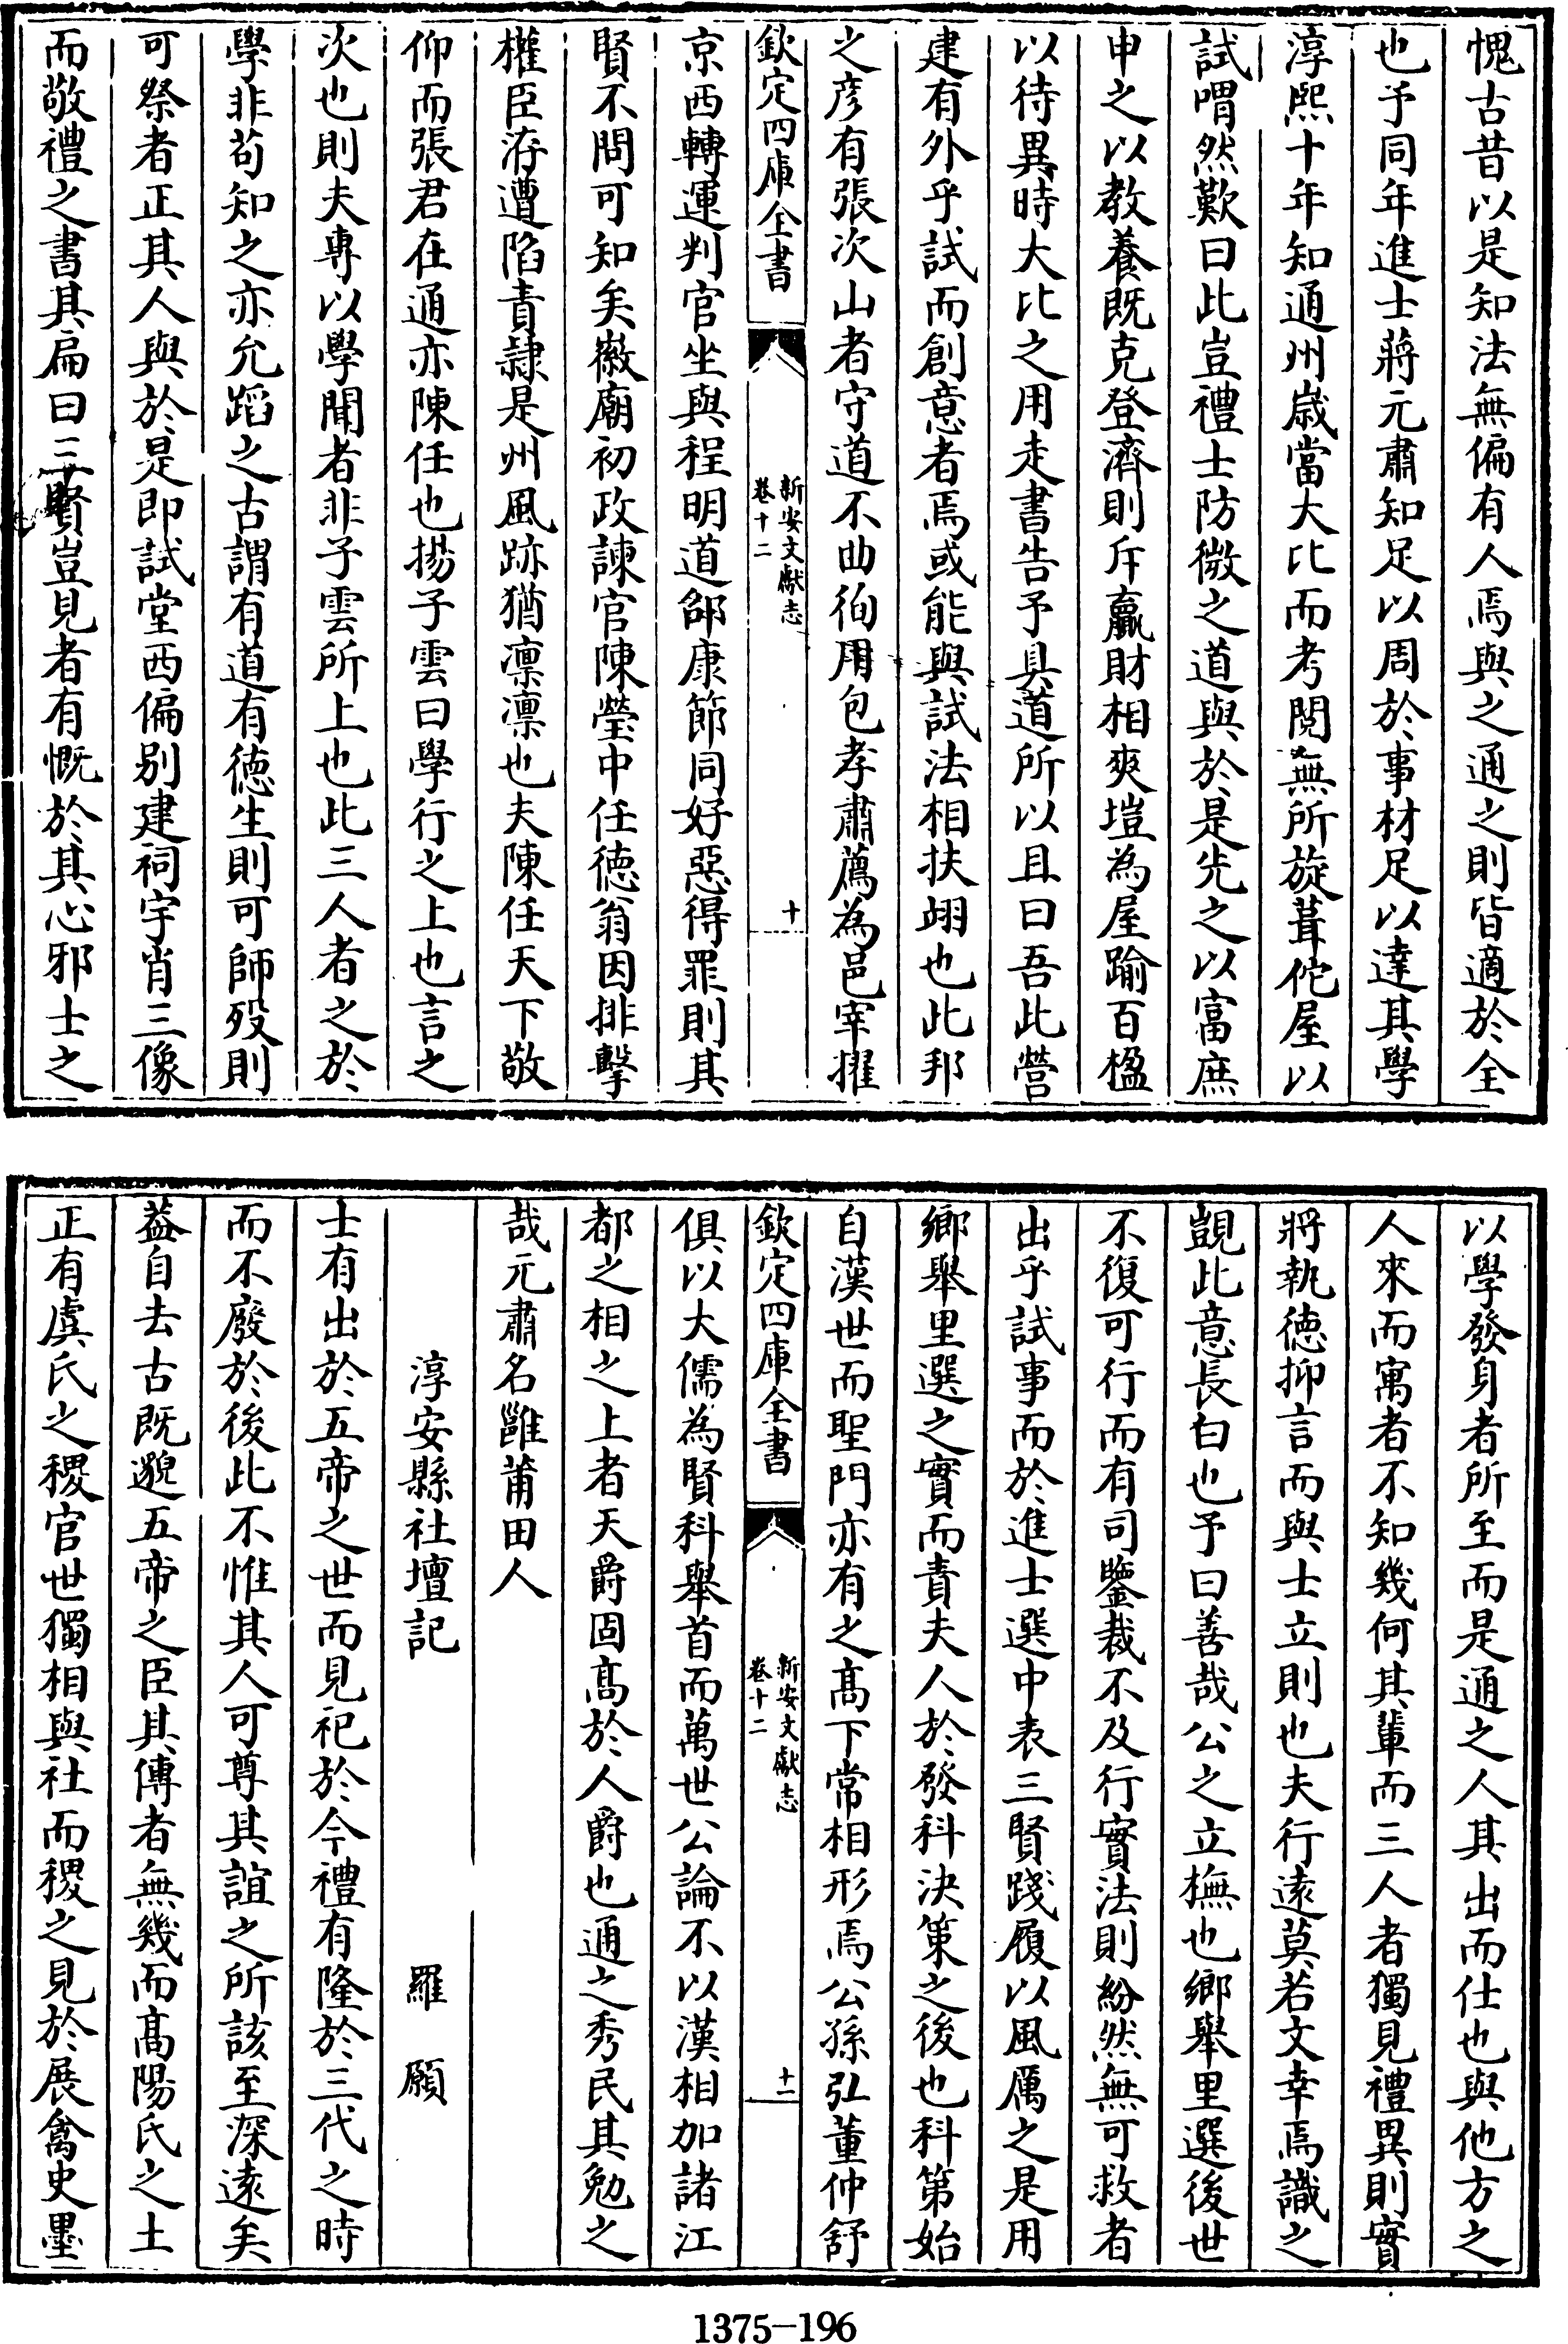 愧古昔以是知法無偏有人焉與之通之則皆適於全
也予同年進士蔣元肅知足以周於事材足以達其學
淳熙十年知通州歳當大比而考閲無所旋葺佗屋以
試喟然歎曰此豈禮士防微之道與於是先之以富庶
申之以教養既克登濟則斥贏財相爽塏為屋踰百楹
以待異時大比之用走書告予具道所以且曰吾此營
建有外乎試而創意者焉或能與試法相扶翊也此邦
之彦有張次山者守道不曲徇用包孝肅薦為邑宰擢
欽定四庫全書
新安文獻志
卷十二
十
京西轉運判官坐與程明道邵康節同好惡得罪則其
賢不問可知矣徽廟初政諫官陳瑩中任德翁因排擊
權臣洊遭陷責隷是州風跡猶凛凛也夫陳任天下敬
仰而張君在通亦陳任也揚子雲曰學行之上也言之
次也則夫專以學聞者非子雲所上也此三人者之於
學非苟知之亦允蹈之古謂有道有徳生則可師殁則
可祭者正其人與於是即試堂西偏别建祠宇肖三像
而敬禮之書其扁曰三賢豈見者有慨於其心邪士之
以學發身者所至而是通之人其出而仕也與他方之
人來而寓者不知幾何其輩而三人者獨見禮異則實
將執徳抑言而與士立則也夫行逺莫若文幸焉識之
覬此意長白也予曰善哉公之立橅也鄉舉里選後世
不復可行而有司鑒裁不及行實法則紛然無可救者
出乎試事而於進士選中表三賢踐履以風厲之是用
鄉舉里選之實而責夫人於發科決策之後也科第始
自漢世而聖門亦有之髙下常相形焉公孫弘董仲舒
欽定四庫全書
新安文獻志
卷十二
十一
俱以大儒為賢科舉首而萬世公論不以漢相加諸江
都之相之上者天爵固髙於人爵也通之秀民其勉之
哉元肅名雝莆田人
淳安縣社壇記
羅願
士有出於五帝之世而見祀於今禮有隆於三代之時
而不廢於後此不惟其人可尊其誼之所該至深逺矣
葢自去古既邈五帝之臣其傳者無幾而髙陽氏之土
正有虞氏之稷官世獨相與社而稷之見於展禽史墨
1375-196